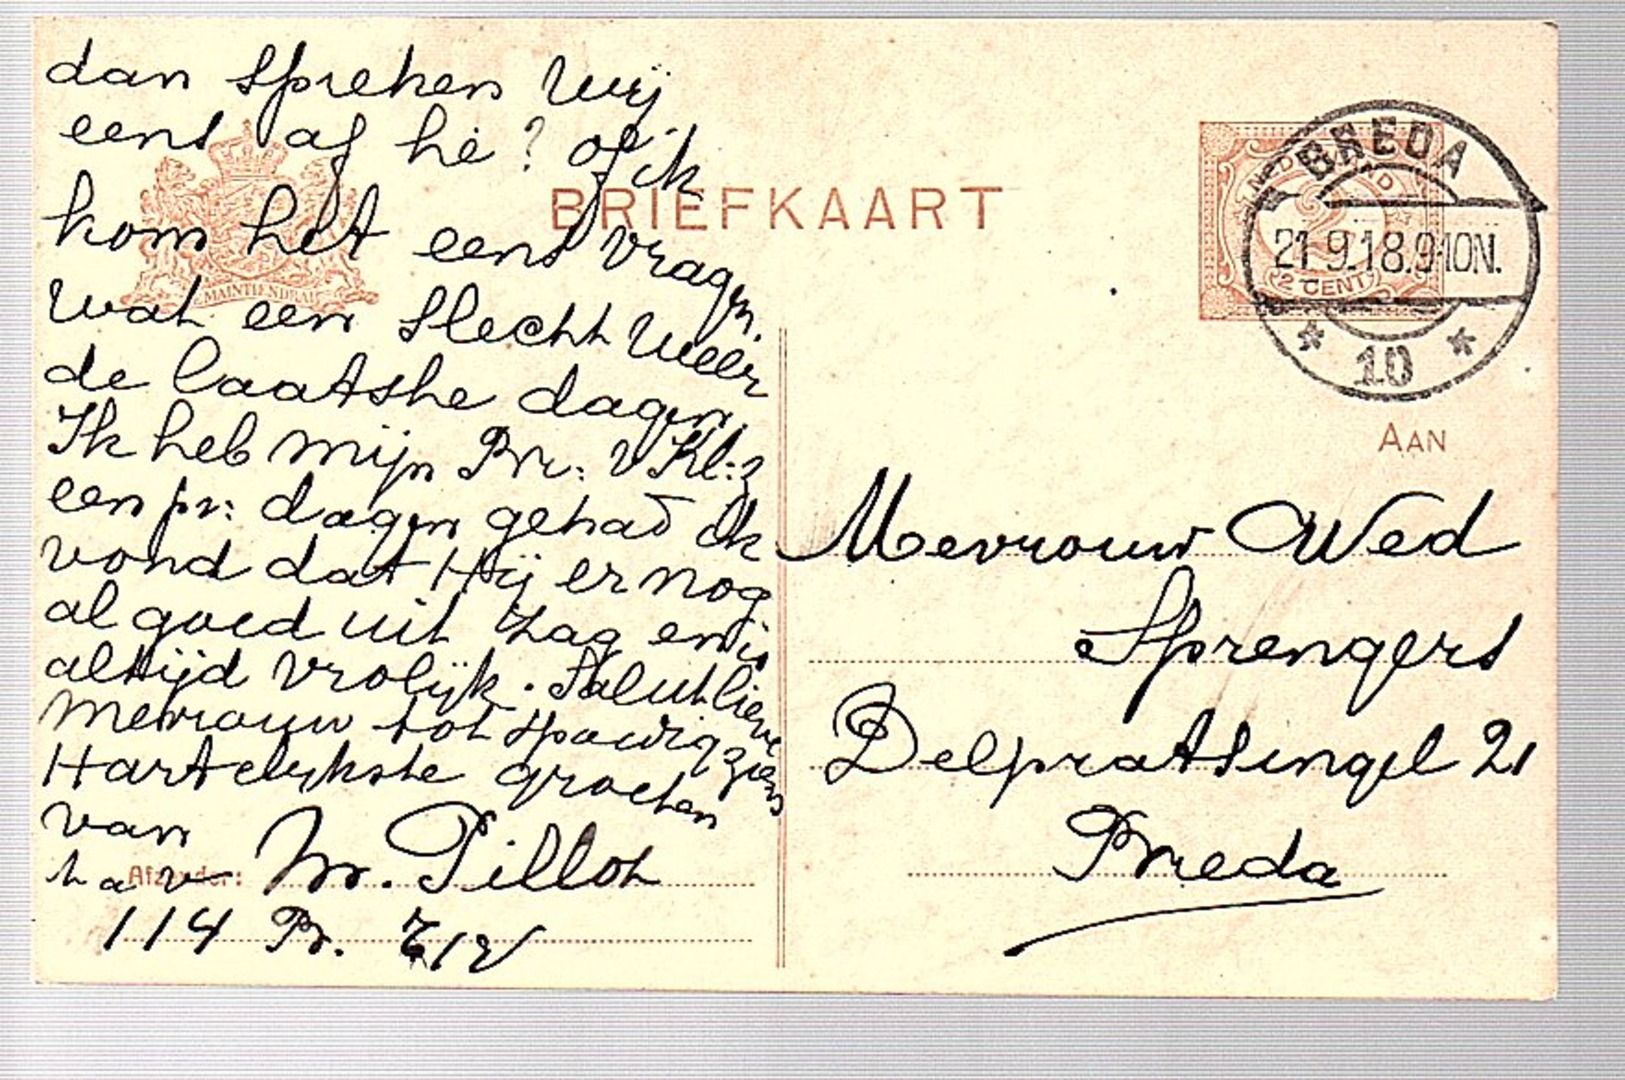 dan spreken wij
eens af hé? of ik
kom het eens vragen.
wat een slecht weer
de laatste dagen.
Ik heb mijn Br: v Kl:z
een pr: dagen gehad ik
vond dat Hij er nog
al goed uit zag en is
altijd vrolijk. Saluut lieve
Mevrouw tot spoedig ziens
Hartelijkste groeten
van
Afzender: Pilloh
114 Br.
BRIEFKAART
JE MAINTIENDRAI
NEDERLAND
2 CENT
BREDA
21.9.18.9-10N.
* 10 *
AAN
Mevrouw Wed
Sprengers
Delpratsingel 21
Breda